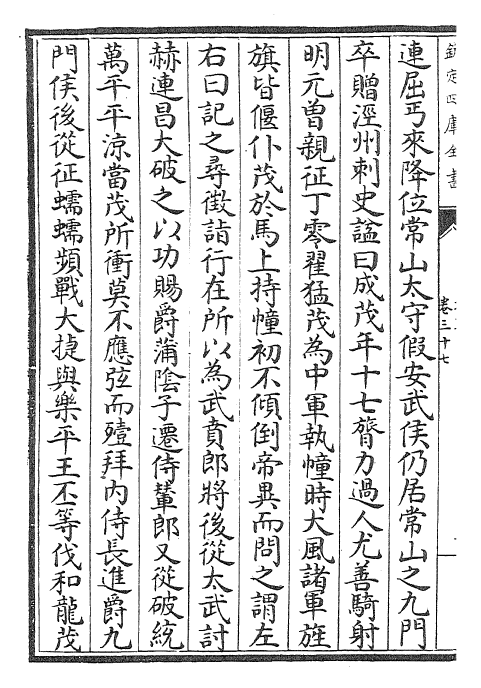 欽定四庫全書
卷三十七
連屈丐來降位常山太守假安武侯仍居常山之九門
卒贈涇州刺史諡曰成茂年十七膂力過人尤善騎射
明元曾親征丁零翟猛茂為中軍執幢時大風諸軍旌
旗皆偃仆茂於馬上持幢初不傾倒帝異而問之謂左
右曰記之尋徵詣行在所以為武賁郎將後從太武討
赫連昌大破之以功賜爵蒲陰子遷侍輦郎又從破統
萬平平涼當茂所衝莫不應弦而殪拜內侍長進爵九
門侯後從征蠕蠕頻戰大捷與樂平王丕等伐和龍茂